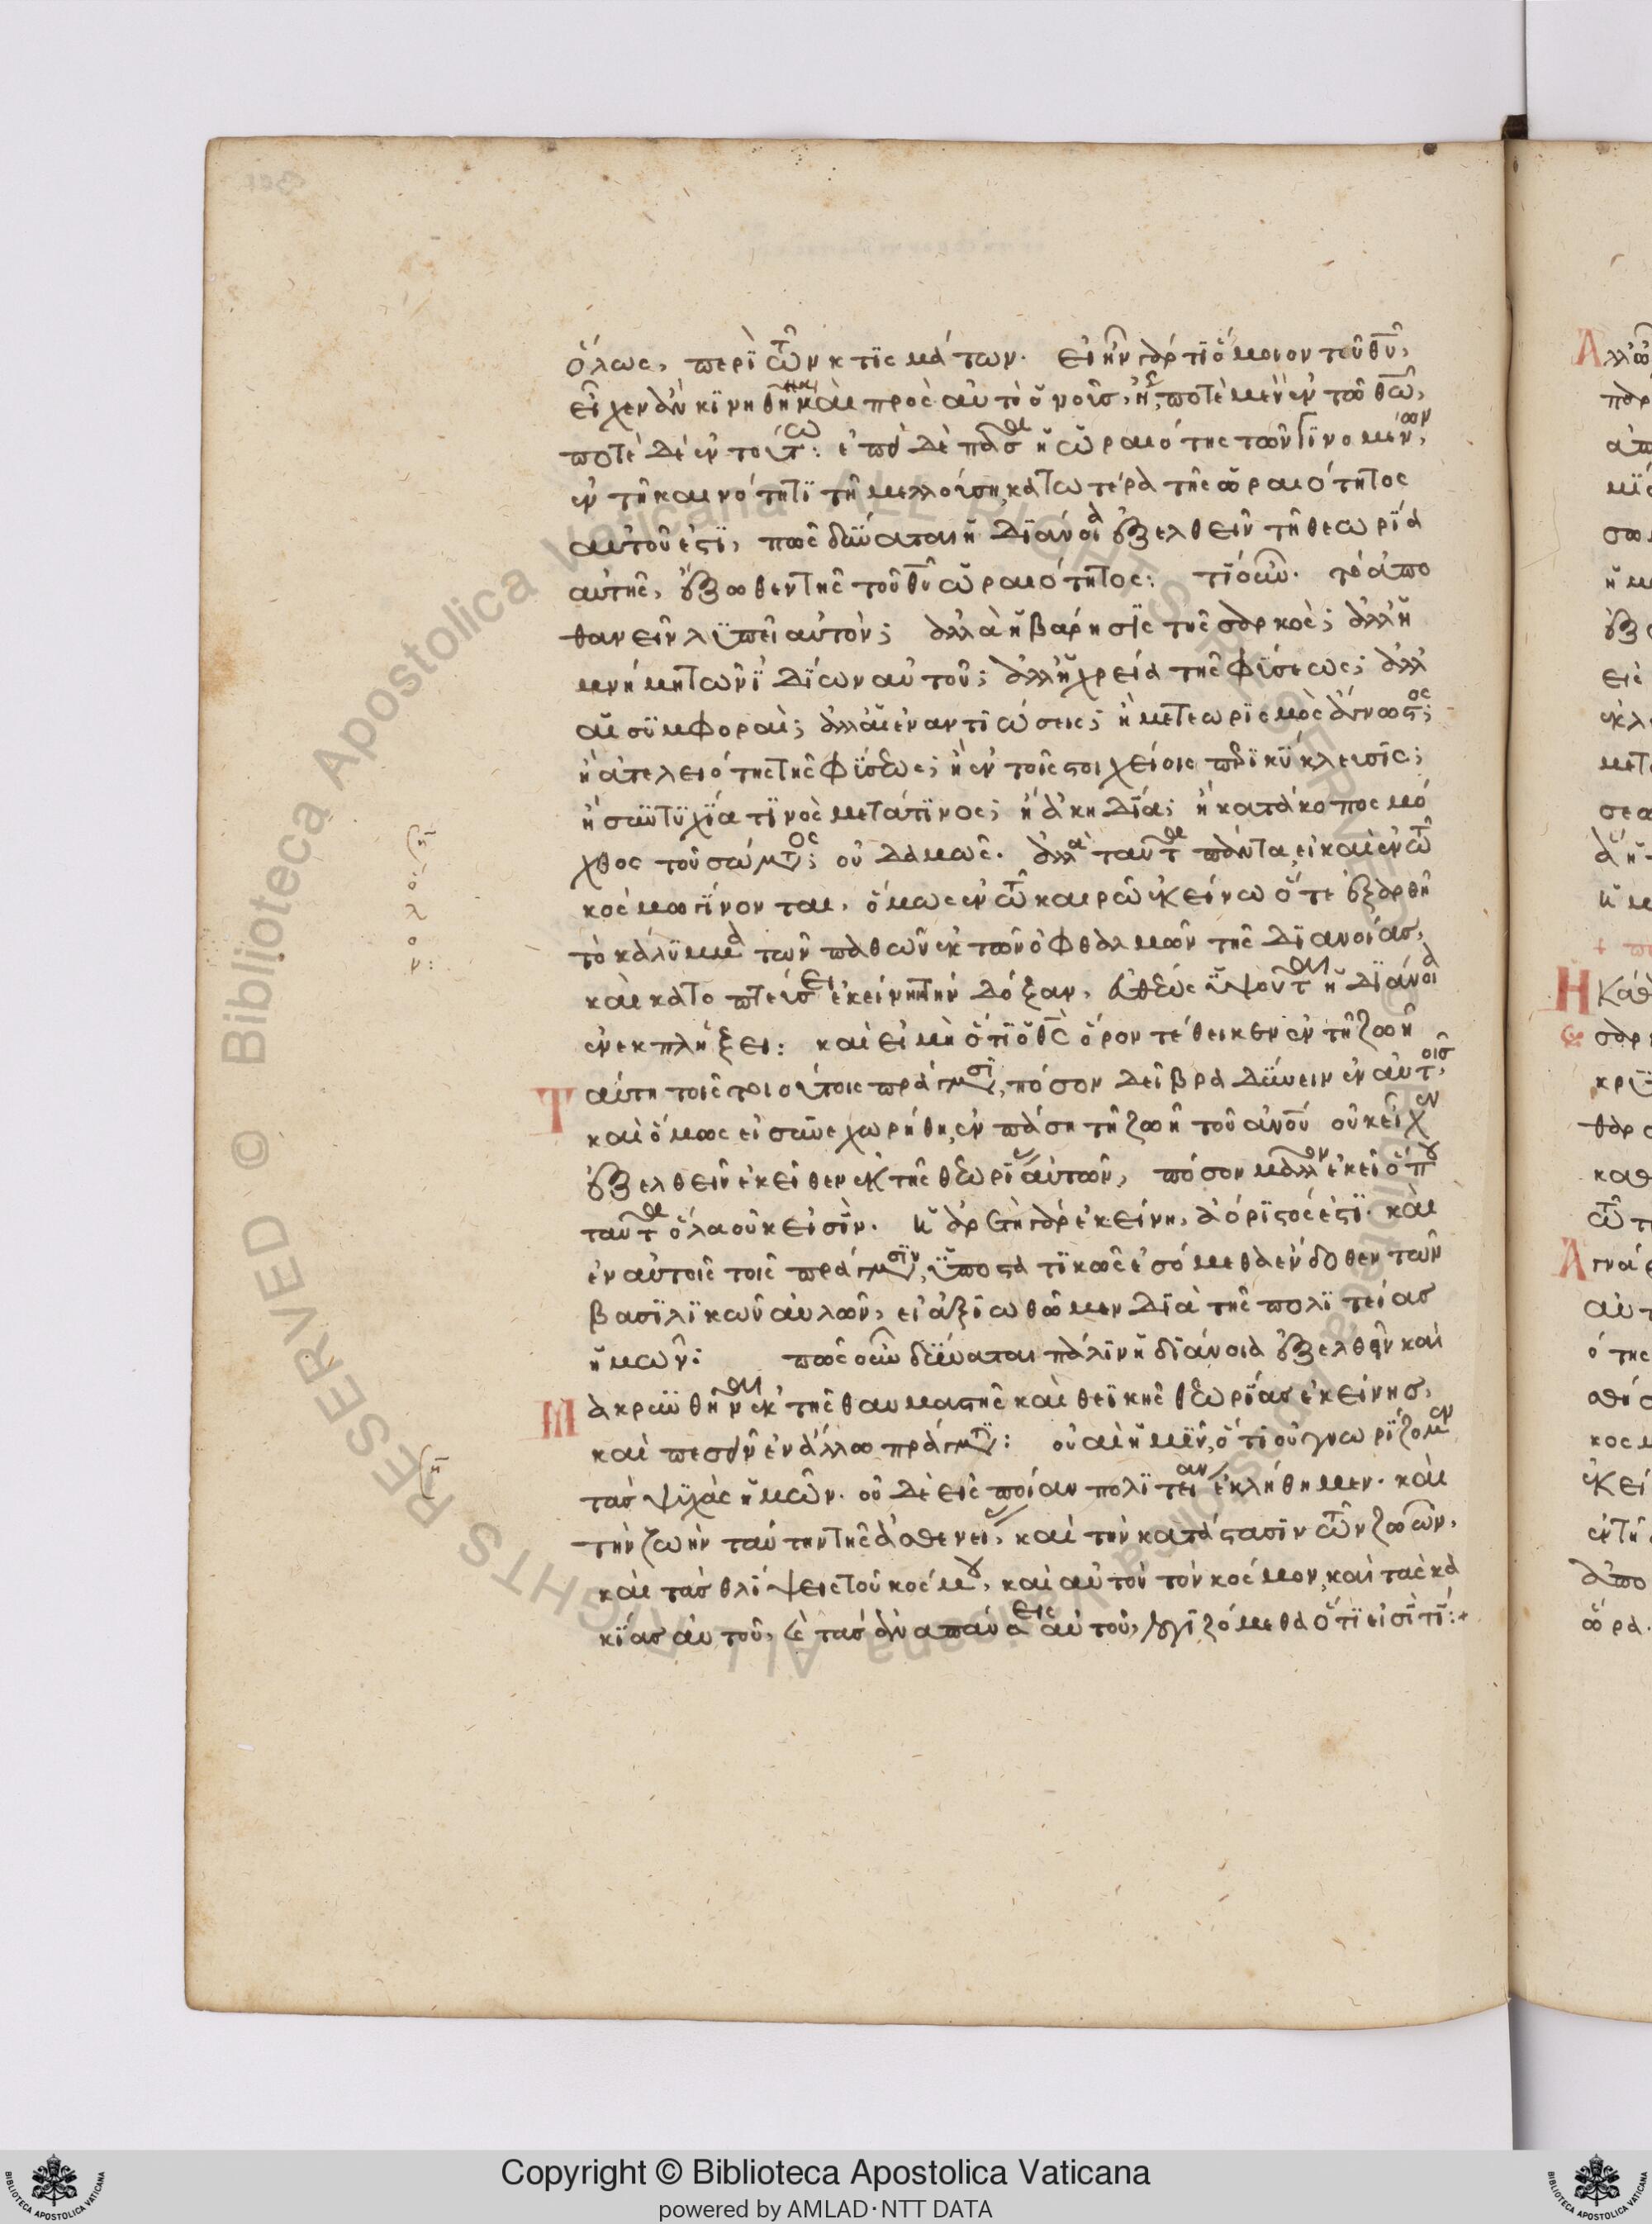 ὅλως, περὶ τῶν κτισμάτων. εἰ ἦν γάρ τι ὅμοιον τοῦ θυ,
εἶχεν ἂν κινηθῆναι πρὸς αὐτὸ ὁ νοῦς, ποτὲ μὲν ἐν τῶ θω,
ποτὲ δὲ ἐν τούτω: ἐπεὶ δὲ πᾶσα ἡ ὡραιότης τῶν γινομένων,
ἐν τῆ καινότητι τῆ μελλούση, κατωτέρα τῆς ὡραιότητος
αὐτοῦ ἐστι, πῶς δύναται ἡ διάνοια ἐξελθεῖν τῆ θεωρία
αὐτῆς, ἔξωθεν τῆς τοῦ θυ ὡραιότητος: τί οὖν. τὸ ἀπο
θανεῖν λυπεῖ αὐτόν; ἀλλὰ ἡ βάρησις τῆς σαρκός; ἀλλ ἡ
μνήμη τῶν ἰδίων αὐτοῦ; ἀλλ ἡ χρεία τῆς φύσεως; ἀλλ
αἱ συμφοραί; ἀλλ αἱ ἐναντιώσεις; ἢ μετεωρισμὸς ἄγνωστος;
ἢ ἀτελειότης τῆς φύσεως; ἢ ἐν τοῖς στοιχείοις περικύκλεισις;
ἢ συντυχία τινὸς μετά τινος; ἢ ἀκηδία; ἢ κατάκοπος μό
χθος τοῦ σώματος; οὐδαμῶς. ἀλλὰ ταῦτα πάντα, εἰ καὶ ἐν τῶ
κόσμω γίνονται, ὅμως ἐν τῶ καιρῶ ἐκείνω ὅτε ἐξαρθῆ
τὸ κάλυμμα τῶν παθῶν ἐκ τῶν ὀφθαλμῶν τῆς διανοίας,
καὶ κατοπτεύσει ἐκείνην τὴν δόξαν, εὐθέως ὑψοῦται ἡ διάνοια
ἐν ἐκπλήξει: καὶ εἰ μὴ ὅτι ὁ θς ὅρον τέθεικεν ἐν τῆ ζωῆ
ταύτη τοῖς τοιούτοις πράγμασι, πόσον δεῖ βραδύνειν ἐν αὐτοῖς,
καὶ ὅμως εἰ συνεχωρήθη, ἐν πάση τῆ ζωῆ τοῦ ανου οὐκ εἶχεν
ἐξελθεῖν ἐκεῖθεν ἐκ τῆς θεωρίας αὐτῶν, πόσον μᾶλλον ἐκεῖ ὅπου
ταῦτα ὅλα οὐκ εἰσίν. ἡ ἀρετὴ γὰρ ἐκείνη, ἀόριστός ἐστι. καὶ
ἐν αὐτοῖς τοῖς πράγμασιν, ὑποστατικῶς ἐσόμεθα ἔνδοθεν τῶν
βασιλικῶν αὐλῶν, εἰ ἀξιωθῶμεν διὰ τῆς πολιτείας
ἡμῶν: πῶς οὖν δύναται πάλιν ἡ διάνοια ἐξελθεῖν καὶ
μακρυνθῆναι ἐκ τῆς θαυμαστῆς καὶ θεϊκῆς θεωρίας ἐκείνης,
καὶ πεσεῖν ἐν ἄλλω πράγματι: οὐαὶ ἡμῖν, ὅτι οὐ γνωρίζομεν
τὰς ψυχὰς ἡμῶν. οὐδὲ εἰς ποίαν πολιτείαν ἐκλήθημεν. καὶ
τὴν ζωὴν ταύτην τῆς ἀσθενείας, καὶ τὴν κατάστασιν τῶν ζώων,
καὶ τὰς θλίψεις τοῦ κόσμου, καὶ αὐτὸν τὸν κόσμον, καὶ τὰς κα
κίας αὐτοῦ, καὶ τὰς ἀναπαύσεις αὐτοῦ, λογιζόμεθα ὅτι εἰσί τι:+
ὅλον:
Copyright © Biblioteca Apostolica Vaticana
powered by AMLAD·NTT DATA